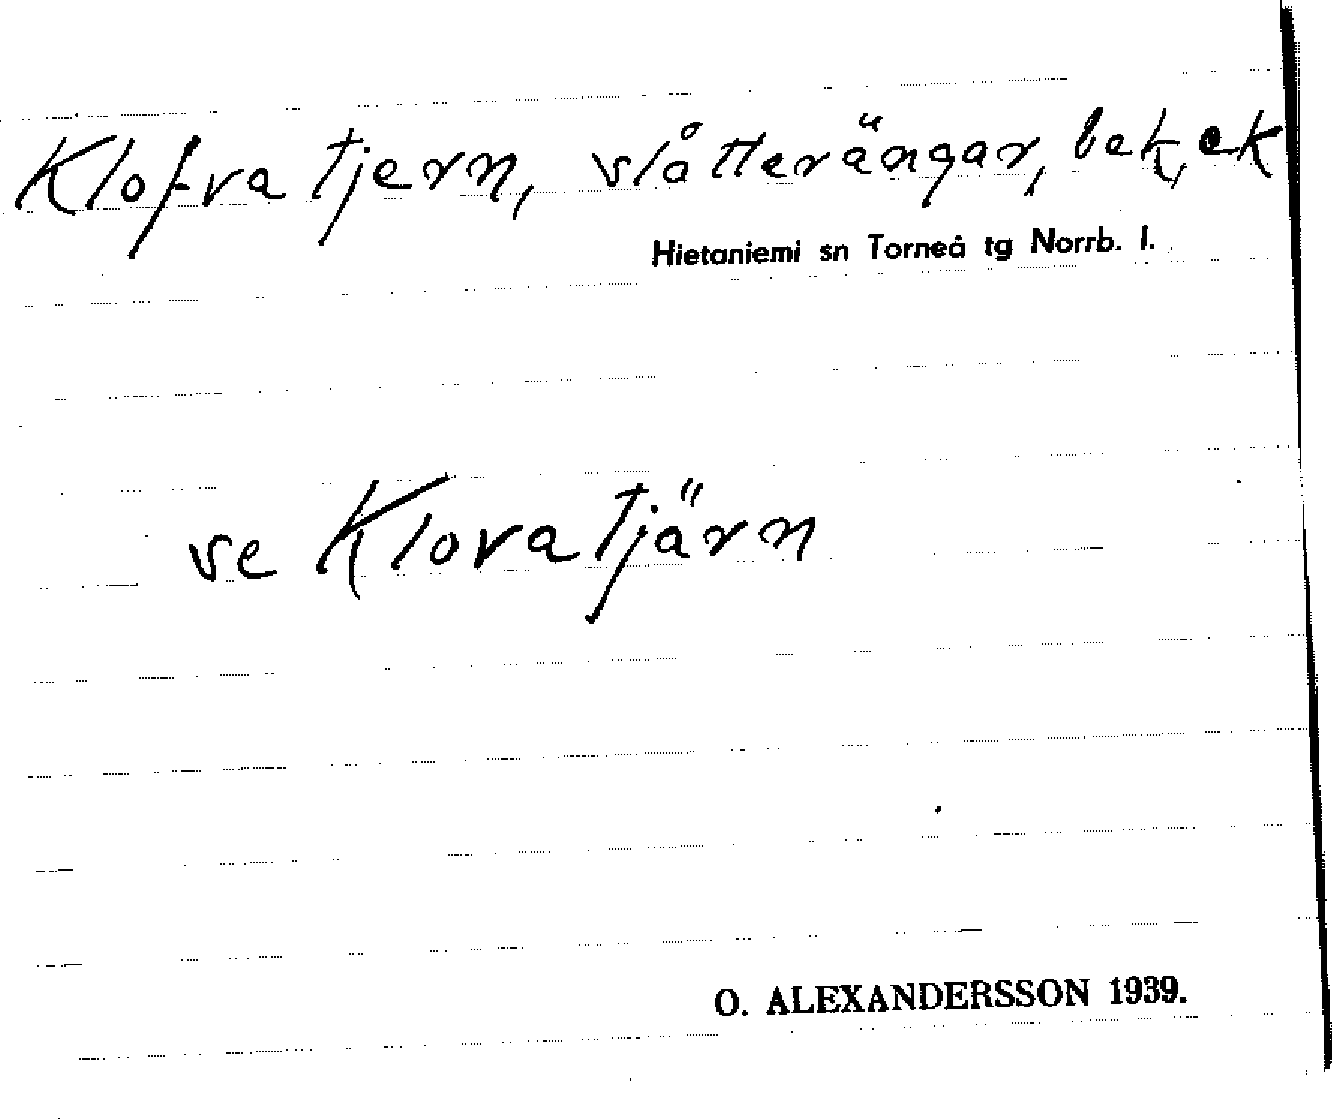 Klofva tjern, slåtterängar, bek, ek
Hietaniemi sn Torneå tg Norrb. l.
se Klovatjärn
O. ALEXANDERSSON 1939.